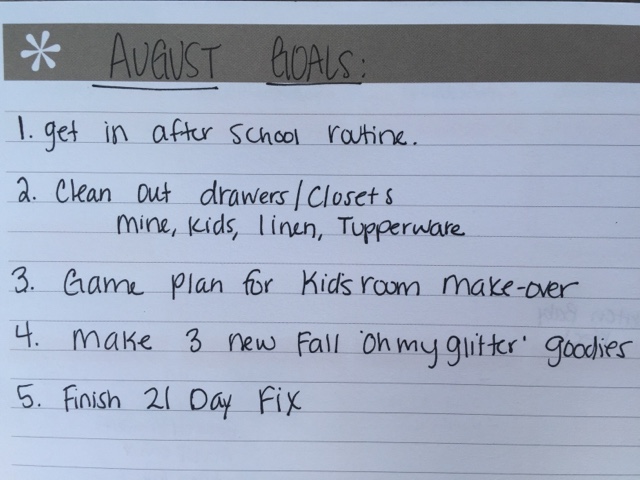 * AUGUST GOALS:
1. get in after school routine.
2. Clean out drawers/Closets
mine, kids, linen, Tupperware
3. Game plan for Kid's room make-over
4. make 3 new Fall 'oh my glitter' goodies
5. Finish 21 Day Fix